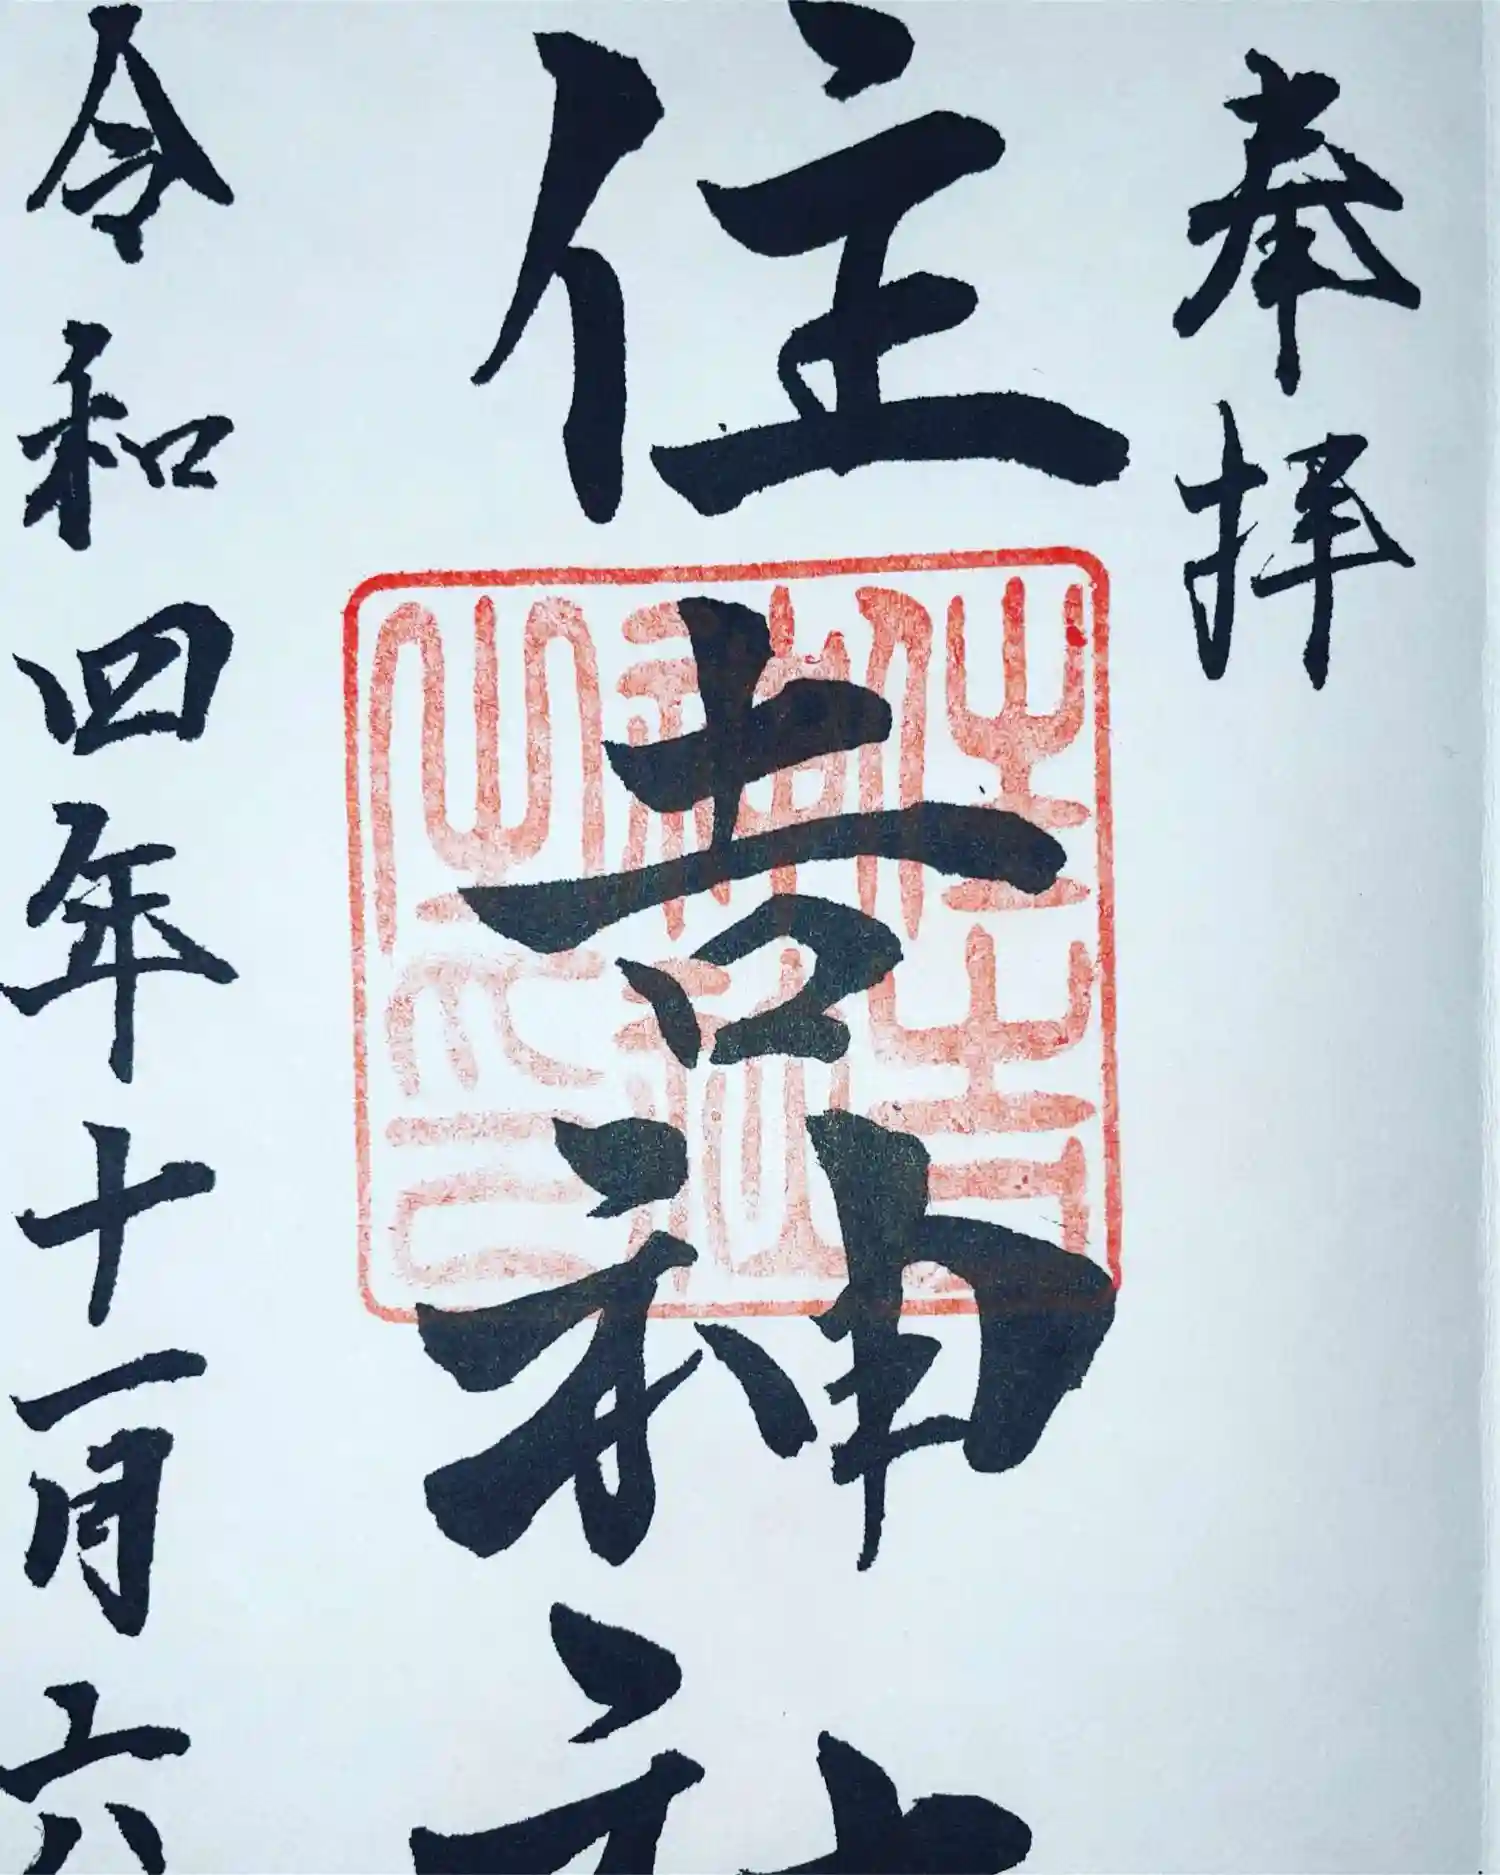 奉拝
住吉神社
令和四年十一月六
住吉神社之印